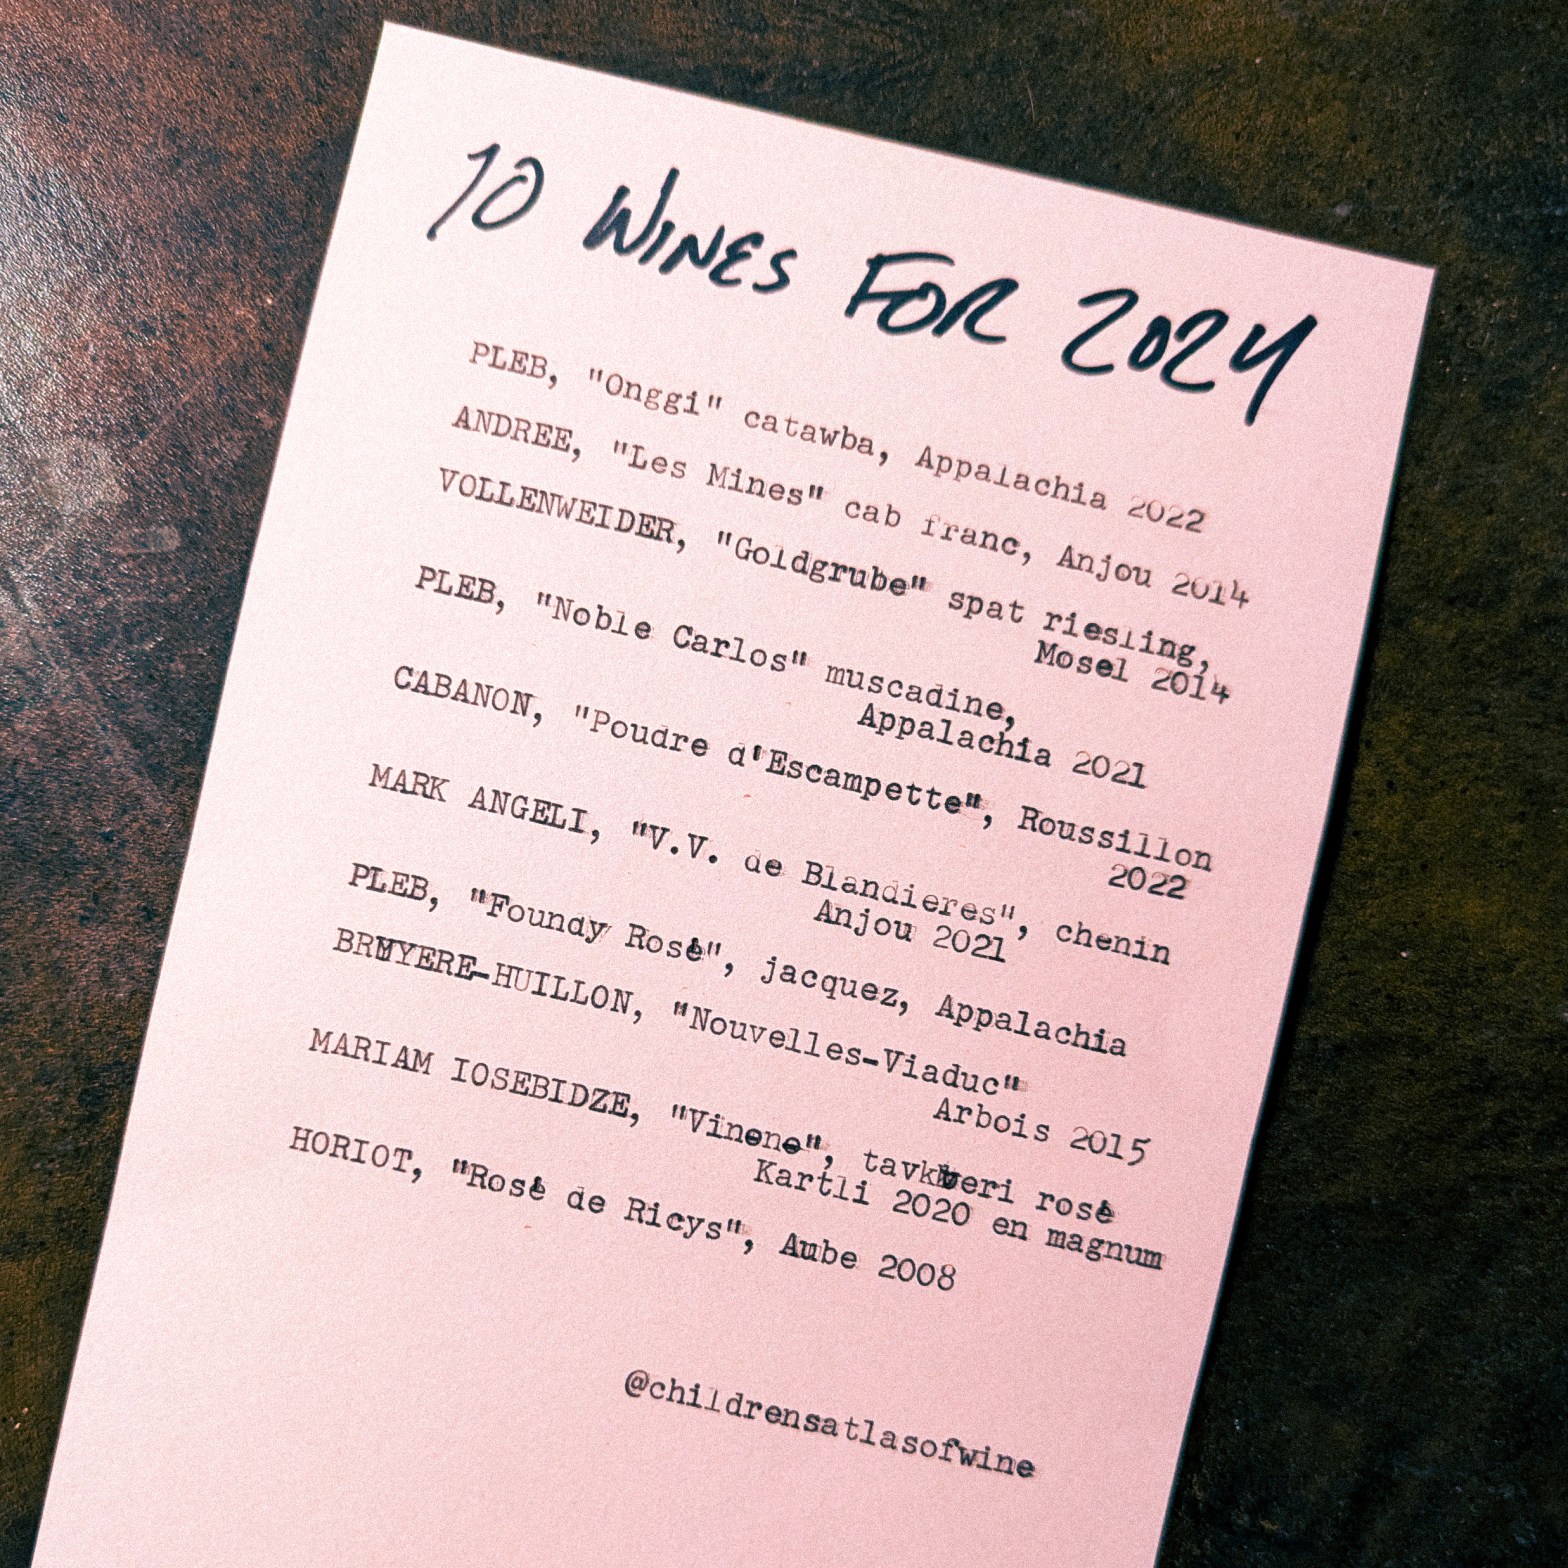 10 WINES FOR 2024
PLEB, "Onggi" catawba, Appalachia 2022
ANDREE, "Les Mines" cab franc, Anjou 2014
VOLLENWEIDER, "Goldgrube" spat riesling,
Mosel 2014
PLEB, "Noble Carlos" muscadine,
Appalachia 2021
CABANON, "Poudre d'Escampette", Roussillon
2022
MARK ANGELI, "V.V. de Blandieres", chenin
Anjou 2021
PLEB, "Foundy Rosé", jacquez, Appalachia
BRUYERE-HUILLON, "Nouvelles-Viaduc"
Arbois 2015
MARIAM IOSEBIDZE, "Vinene", tavkveri rosé
Kartli 2020 en magnum
HORIOT, "Rosé de Ricys", Aube 2008
@childrensatlasofwine